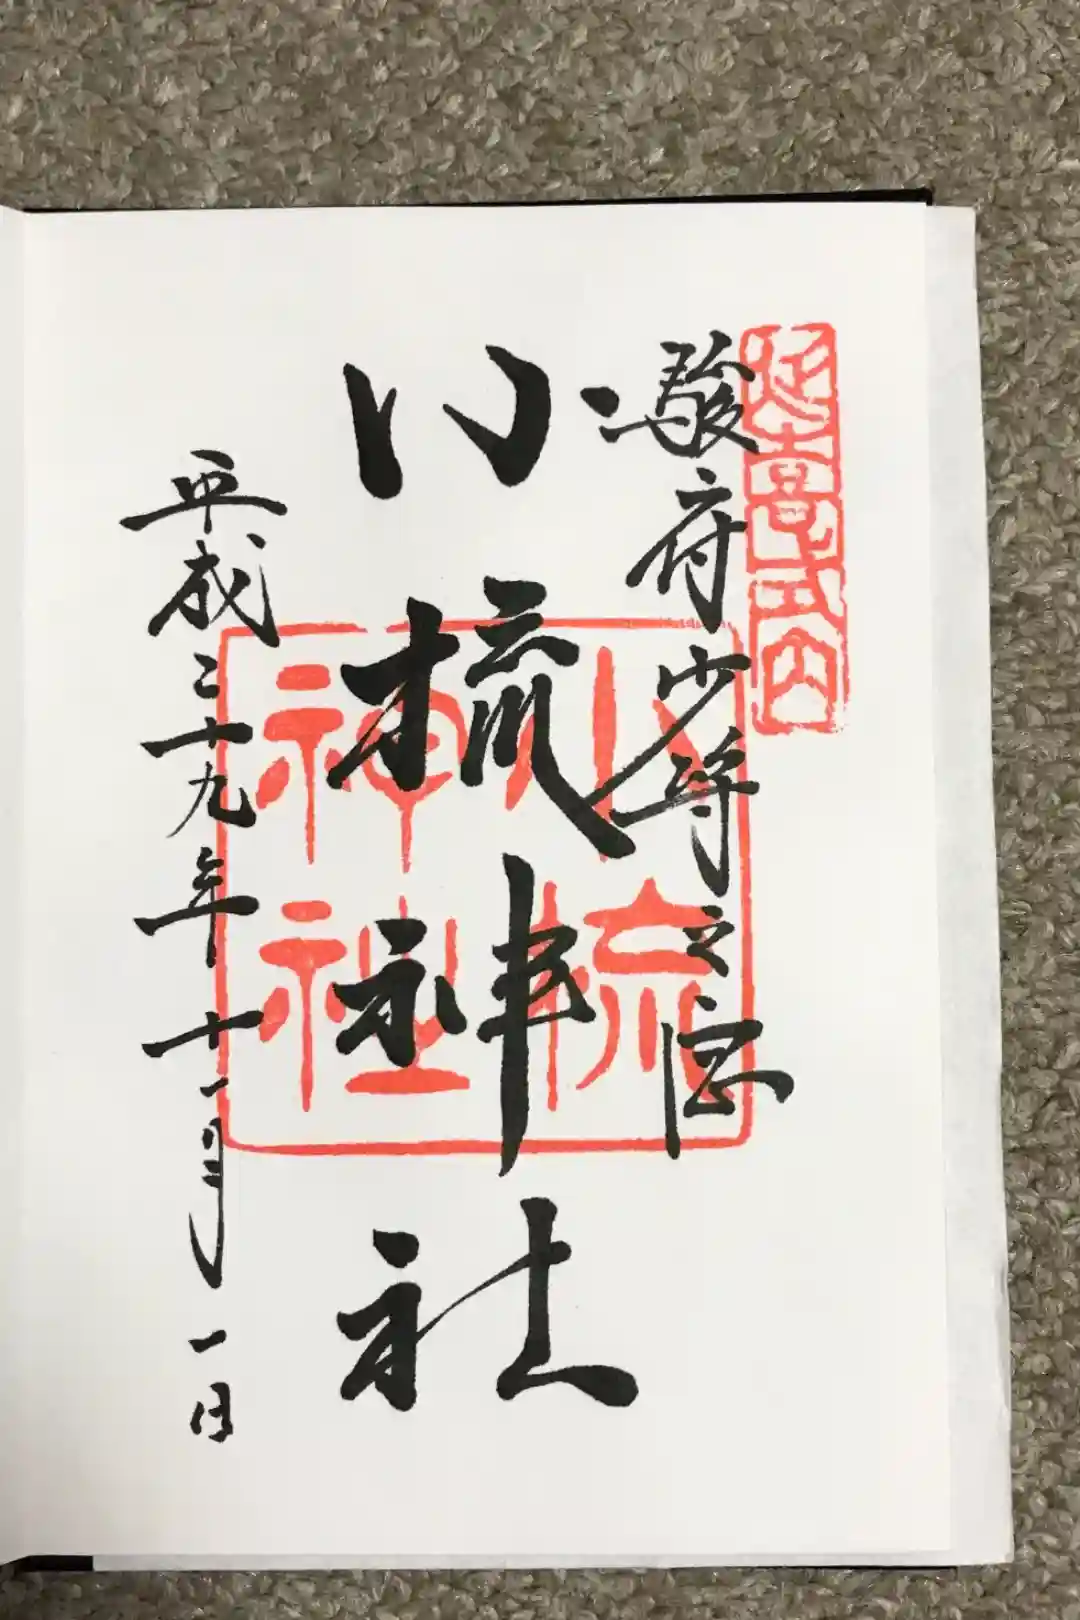 延喜式内
駿府少将之
小梳神社
小梳神社
平成二十九年十一月一日